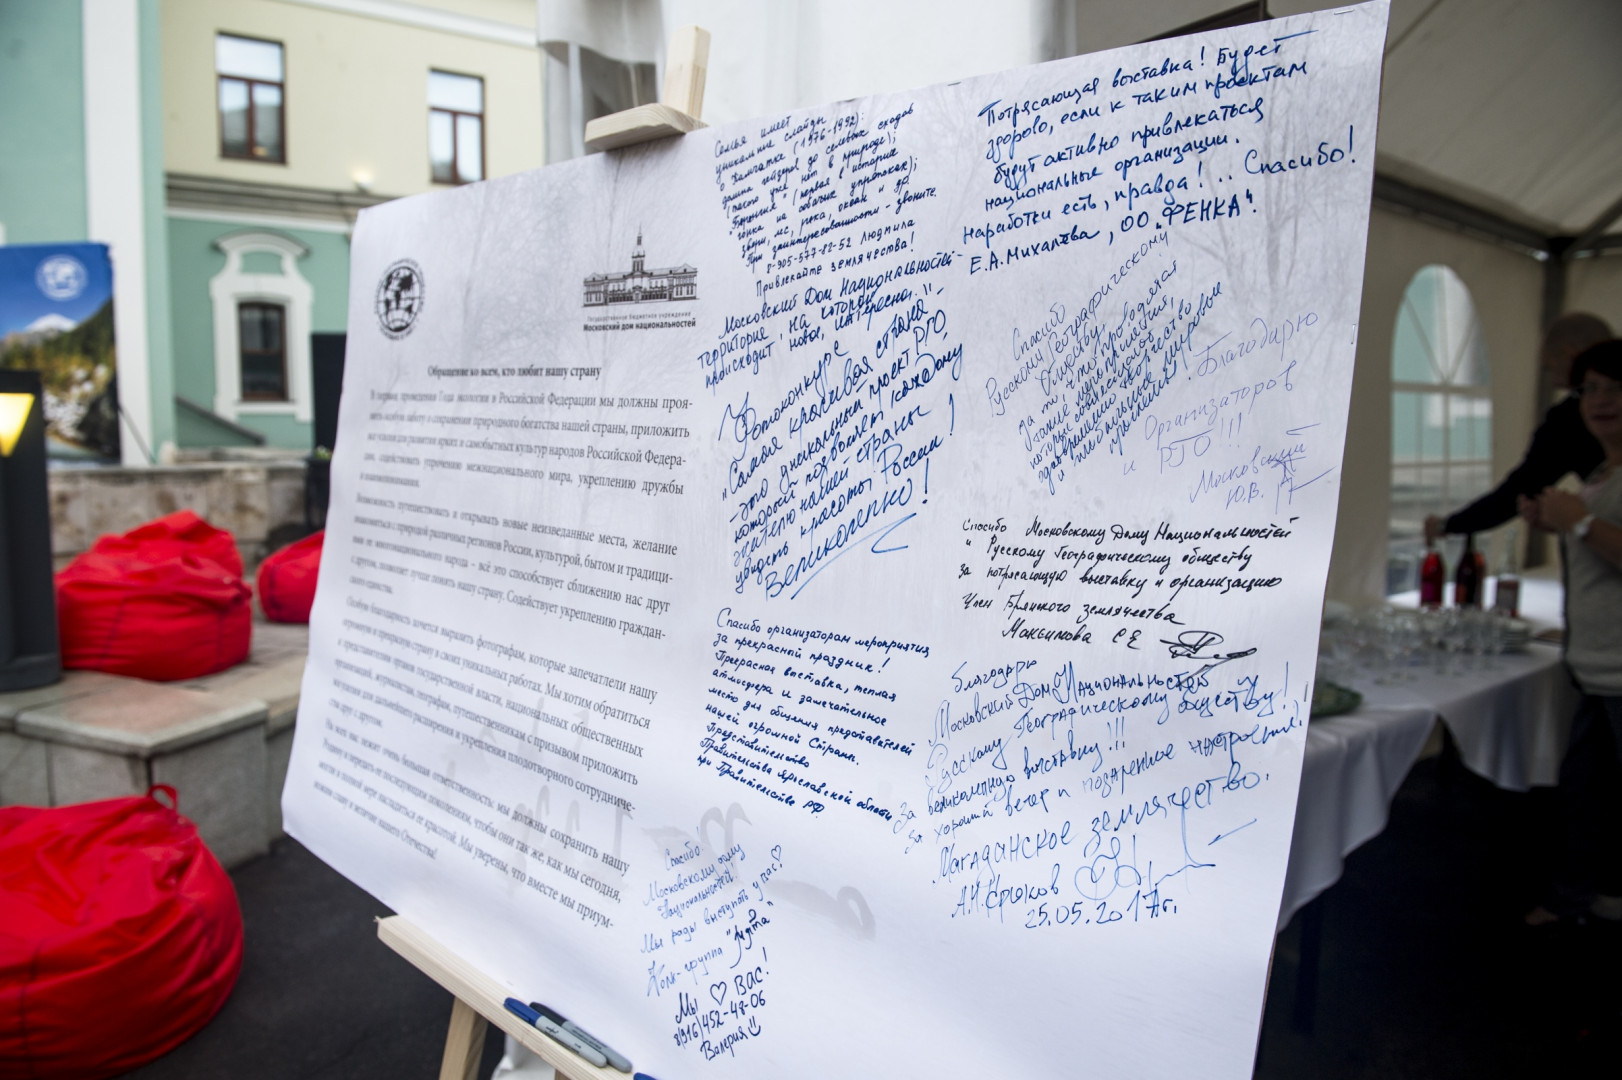 Государственное бюджетное учреждение
Московский дом национальностей
Обращение ко всем, кто любит нашу страну
В период проведения Года экологии в Российской Федерации мы должны проя-
вить особую заботу о сохранении природного богатства нашей страны, приложить
все усилия для развития ярких и самобытных культур народов Российской Федера-
ции, содействовать упрочению межнационального мира, укреплению дружбы
и взаимопонимания.
Возможность путешествовать и открывать новые неизведанные места, желание
знакомиться с природой различных регионов России, культурой, бытом и традици-
ями ее многонационального народа – всё это способствует сближению нас друг
с другом, позволяет лучше понять нашу страну. Содействует укреплению граждан-
ского единства.
Особую благодарность хочется выразить фотографам, которые запечатлели нашу
огромную и прекрасную страну в своих уникальных работах. Мы хотим обратиться
к представителям органов государственной власти, национальных общественных
организаций, журналистам, географам, путешественникам с призывом приложить
все усилия для дальнейшего расширения и укрепления плодотворного сотрудниче-
ства друг с другом.
На всех нас лежит очень большая ответственность: мы должны сохранить нашу
Родину и передать ее последующим поколениям, чтобы они так же, как мы сегодня,
могли в полной мере насладиться ее красотой. Мы уверены, что вместе мы приум-
ножим славу и величие нашего Отечества!
Семья имеет
уникальные слайды
о Камчатке (1976-1992):
долина гейзеров до селевых сходов
(такого уже нет в природе);
"Берингия" (первая в истории
гонка на собачьих упряжках);
звери, лес, река, океан и др.
При заинтересованности - звоните
8-905-577-82-52 Людмила
Привлекайте землячества!
Московский Дом Национальностей -
территория, на которой
происходит новое, интересное!!
Фотоконкурс
"Самая красивая страна"
- это уникальный проект РГО,
который позволяет каждому
жителю нашей страны
увидеть красоты России!
Великолепно!
Спасибо организаторам мероприятия
за прекрасный праздник!
Прекрасная выставка, теплая
атмосфера и замечательное
место для общения представителей
нашей огромной Страны.
Представительство
Правительства Ярославской области
при Правительстве РФ.
Спасибо!
Московскому дому
Национальностей!
Мы рады выступать у вас! ♡
Фолк-группа
Мы ♡ Вас!
8(916)452-48-06
Валерия
Потрясающая выставка! Будет
здорово, если к таким проектам
будут активно привлекаться
национальные организации.
Наработки есть, правда!.. Спасибо!
Е.А.Михалёва, ОО "ФЕНКА".
Спасибо
Русскому Географическому
Обществу,
за то, что проводят
такие мероприятия,
которые
творчество
и мировые
! Благодарю
Организаторов
и РГО!!!
Московский
Ю.В.
Спасибо Московскому Дому Национальностей
и Русскому географическому обществу
за потрясающую выставку и организацию
Член Брянского землячества
Максимова С Е
Благодарю
Московский Дом Национальностей
Русскому Географическому Обществу!
За великолепную выставку!!!
За хороший вечер и подаренное настроение!
Магаданское землячество.
А.И.Крюков
25.05.2017г.